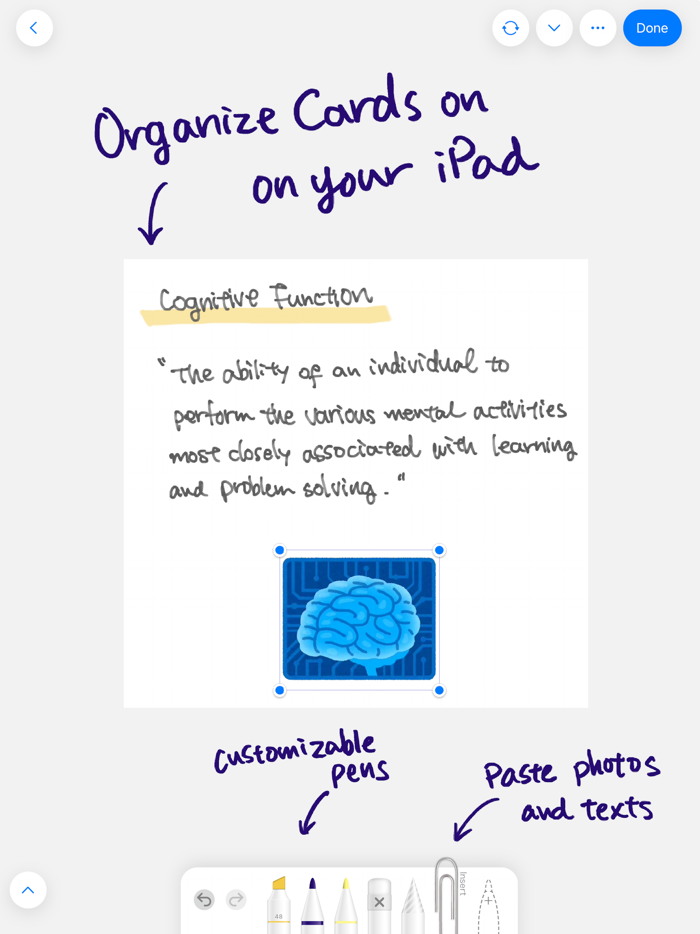 Done
Organize Cards on
on your iPad
Cognitive Function
"The ability of an individual to
perform the various mental activities
most closely associated with learning
and problem solving."
Customizable
pens
Paste photos
and texts
Insert
48